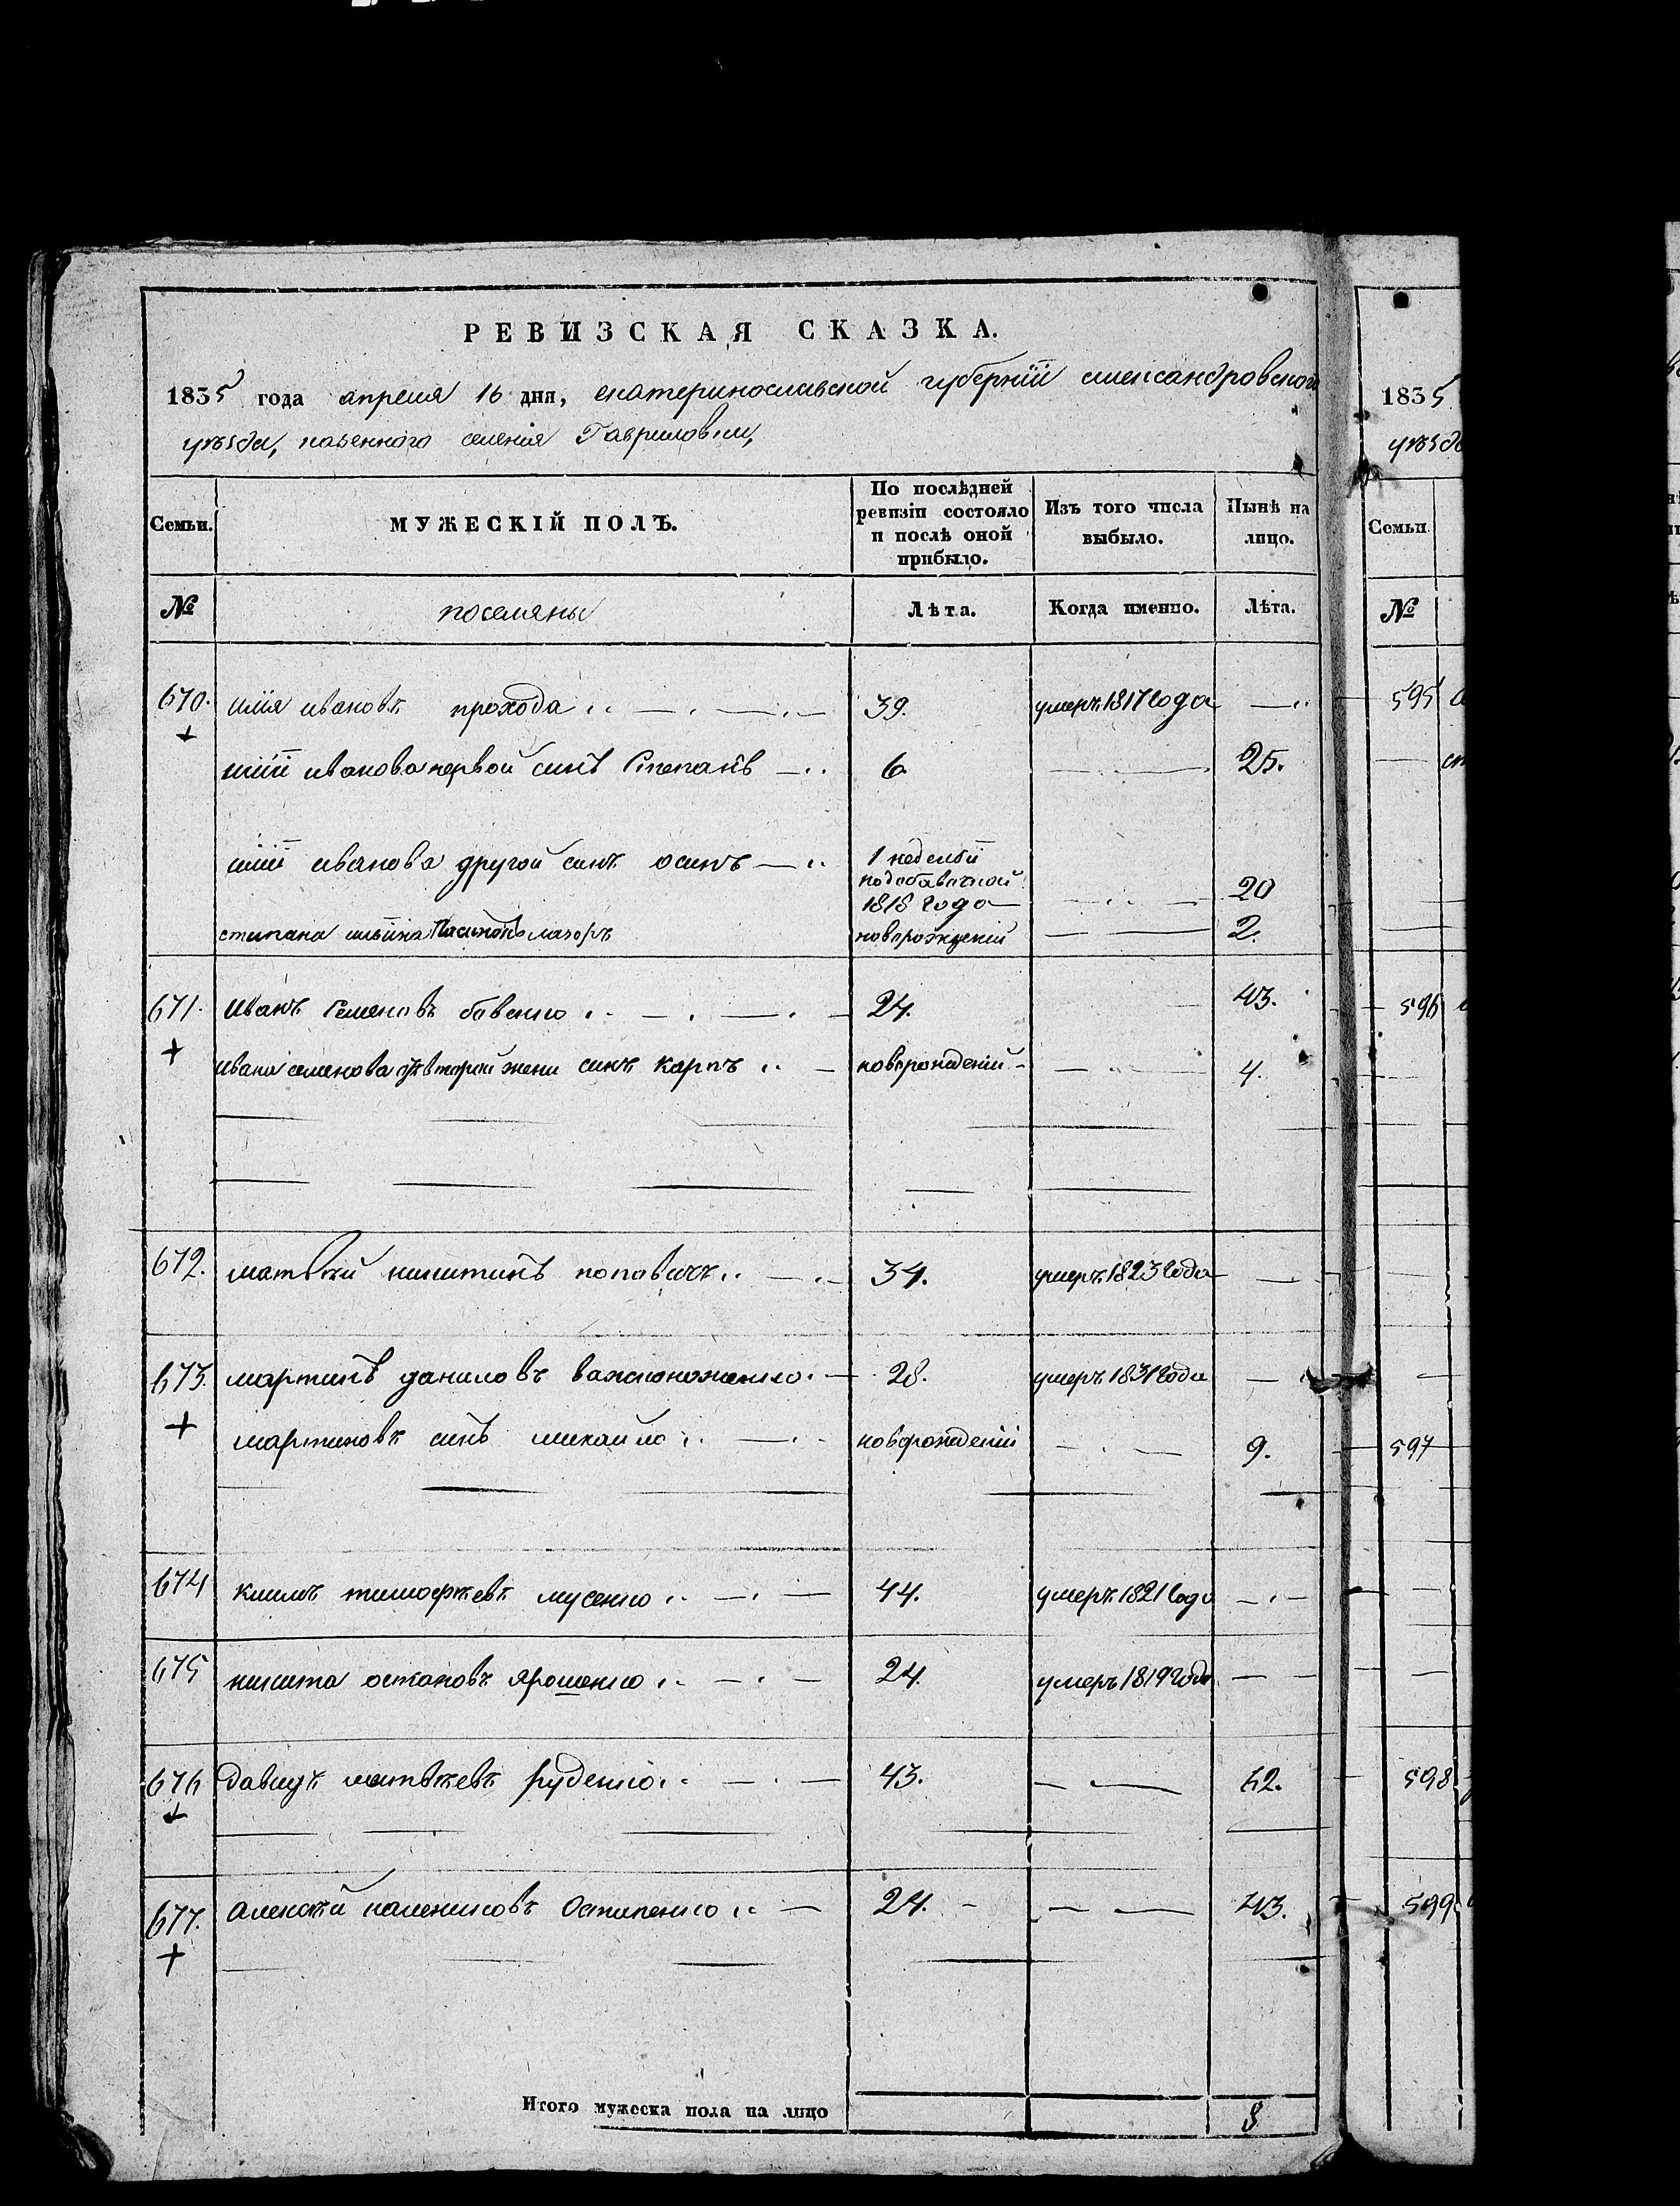 РЕВИЗСКАЯ СКАЗКА.
1835 года апреля 16 дня, екатеринославской губерніи александровского
уѣзда, казенного селенія Гавриловки,
Семьи. МУЖЕСКІЙ ПОЛЪ. По послѣдней ревизіи состояло и послѣ оной прибыло. Изъ того числа выбыло. Нынѣ на лицо.
№ поселяны Лѣта. Когда именно. Лѣта.
670. илія ивановъ прохода 39. умеръ 1817 года
иліи иванова первой синъ Степанъ 6. 25.
иліи иванова другой синъ осипъ 1 неделѣ 1818 года 20
степана ильина новорожденій 2.
671. Иванъ Семеновъ бабенко 24. 43.
ивана семенова второй жени синъ карпъ новорожденій 4.
672. матвѣй никитинъ поповичъ 34. умеръ 1823 года
673. мартинъ даниловъ 28. умеръ 1831 года
мартиновъ синъ михайло новорожденій 9.
674 климъ тимофѣевъ мусенко 44. умеръ 1821 года
675 никита остаповъ ярошенко 24. умеръ 1819 года
676 давидъ матвѣевъ руденко 43. 62.
677. алексѣй калениковъ Остапенко 24. 43.
Итого мужеска пола на лицо 8
1835
уѣзд
Семьи
№
595
596
597
598
599